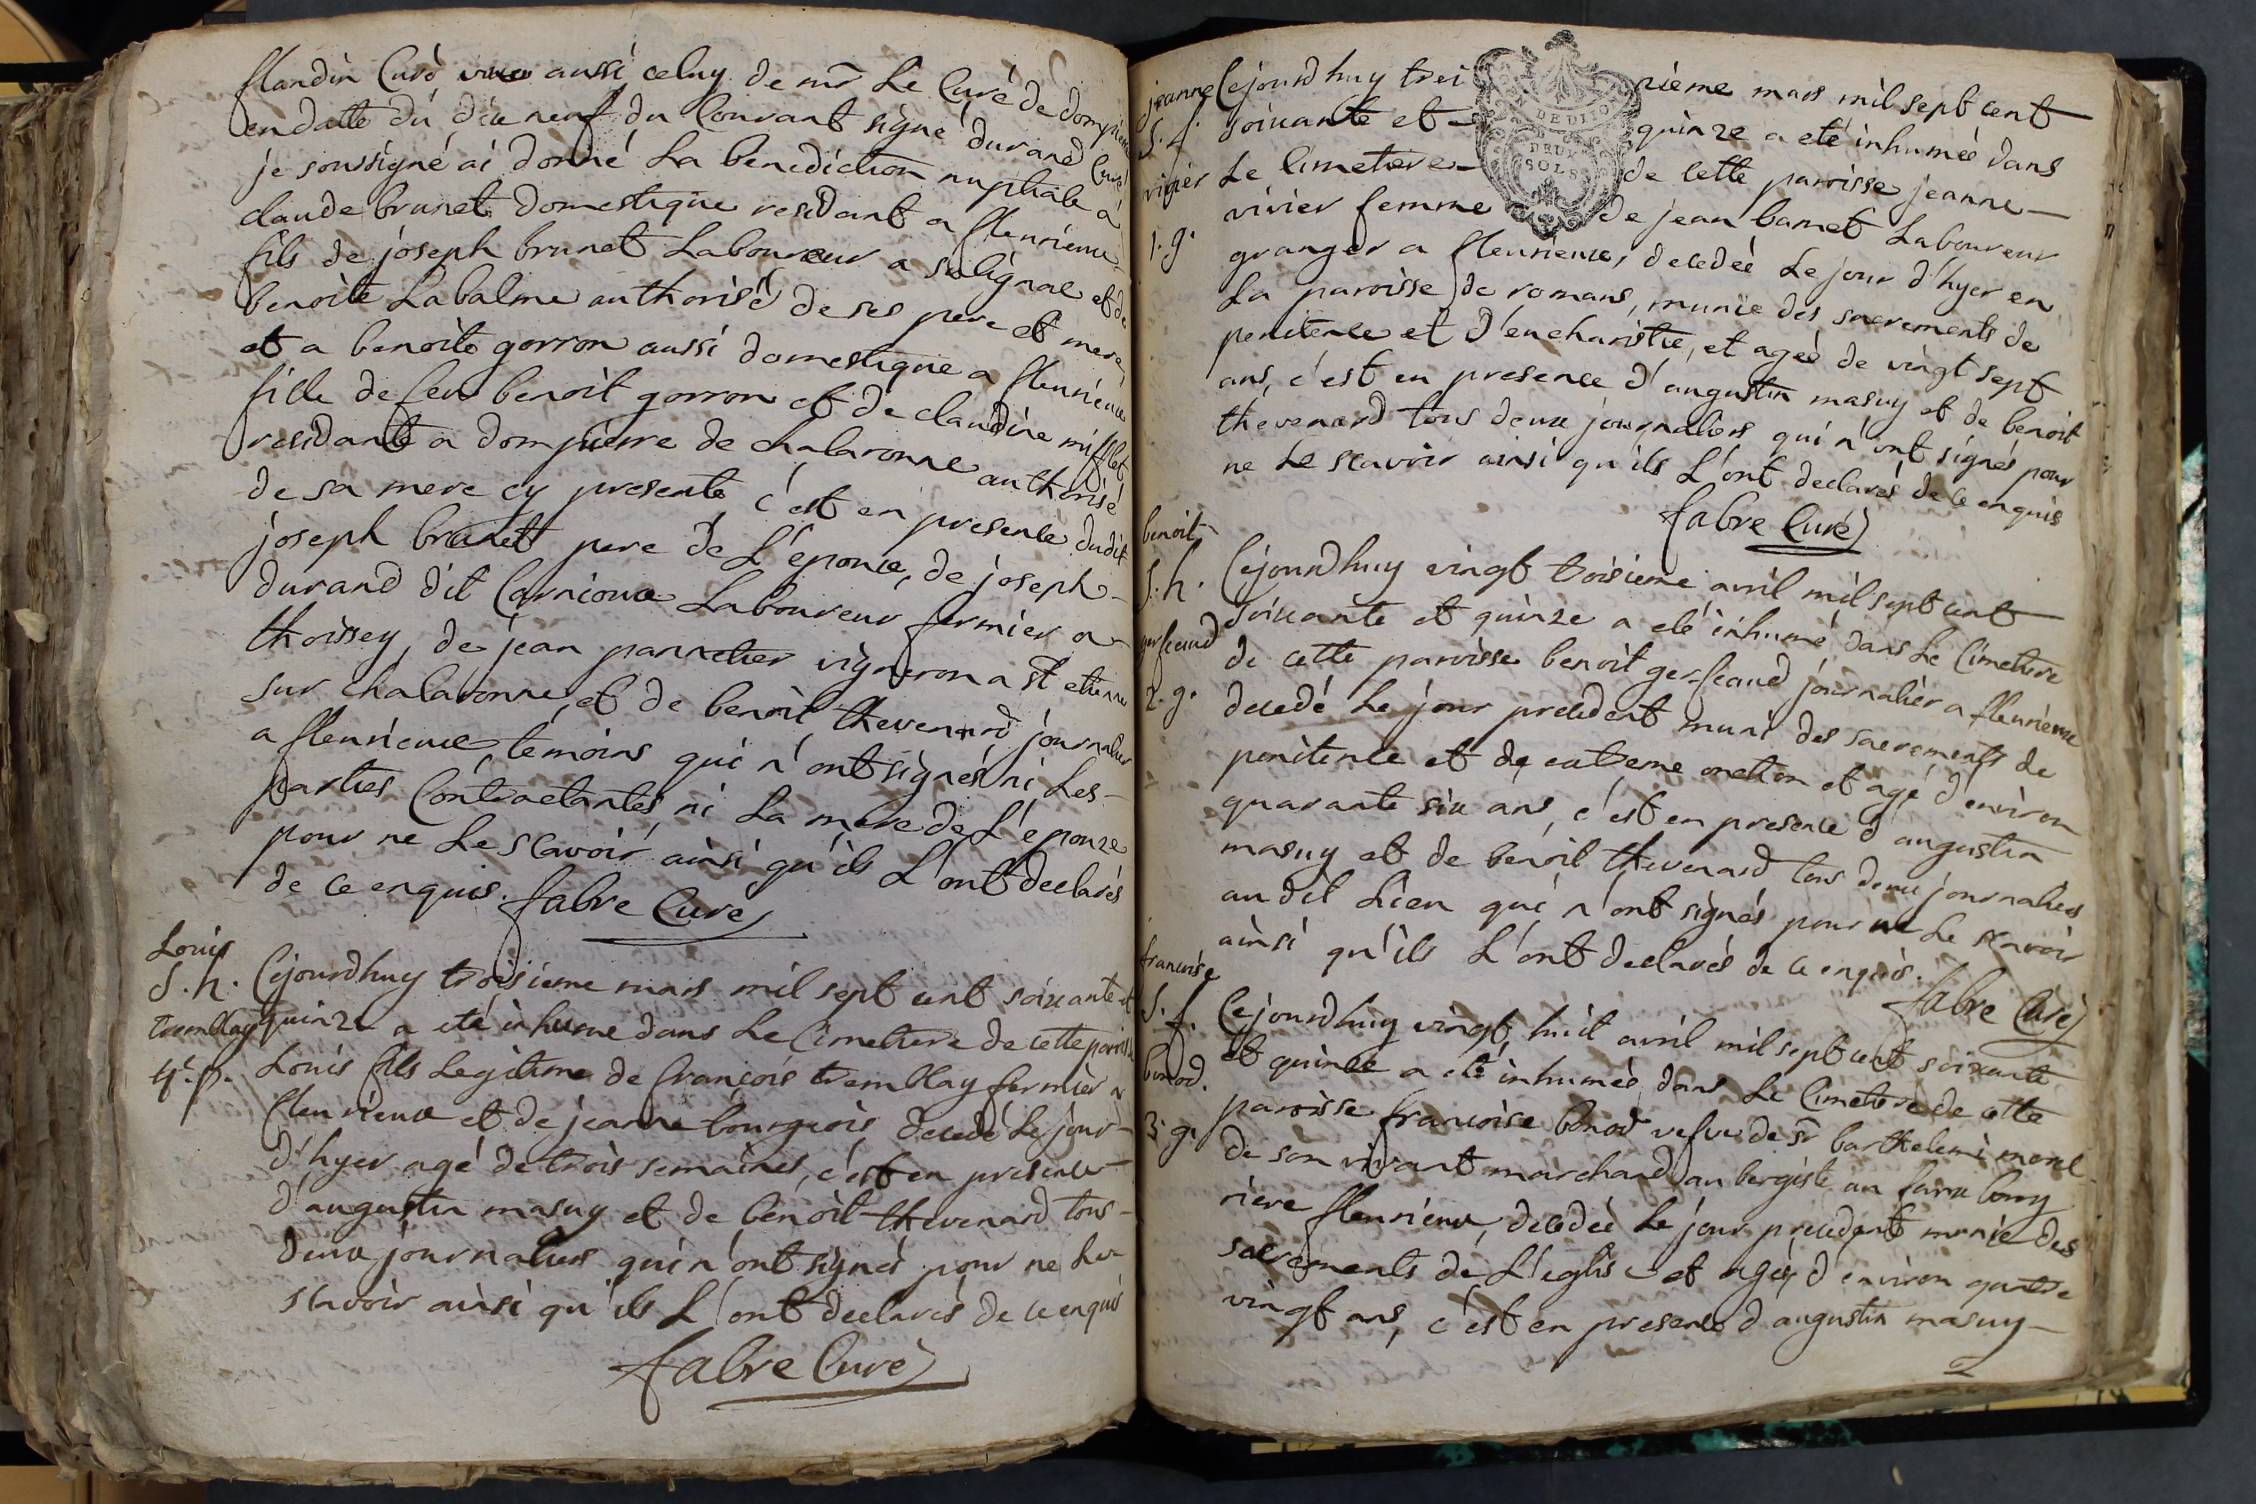 flandin Curé vu aussi celuy de mr Le Curé de dompierre
en datte du dix neuf du Courant signé durand Curé
je soussigné ai donné La benediction nuptiale a
claude brunet domestique residant a fleurieux
fils de joseph brunet Laboureur a salignat et de
benoite Labalme authorisé de ses pere et mere
et a benoite gorron aussi domestique a fleurieux
fille de feu benoit gorron et de claudine mifflet
residante a dompierre de chalaronne authorisé
de sa mere cy presente, c'est en presence dudit
joseph brunet pere de L'epoux, de joseph
durand dit Laboureur fermier a
thoissey, de jean pannetier vigneron a st etienne
sur chalaronne, et de benoit thevenard journalier
a fleurieux, temoins qui n'ont signés ni Les
parties Contractantes, ni La mere de L'epouze
pour ne Le scavoir ainsi qu'ils L'ont declarés
de ce enquis. fabre Curé
Louis
S. h.
tremblay
4. p.
Cejourdhuy troisieme mars mil sept cent soixante et
quinze a eté inhumé dans Le Cimetiere de cette paroisse
Louis fils Legitime de françois tremblay fermier a
fleurieux et de jeanne bourgeois decedé Le jour
d'hyer agé de trois semaines, c'est en presence
d'augustin masuy et de benoit thevenard tous
deux journaliers qui n'ont signés pour ne Le
scavoir ainsi qu'ils L'ont declarés de ce enquis
fabre Curé
jeanne
S. f.
vivier
1. g.
Cejourdhuy trei zieme mars mil sept cent
soixante et quinze a eté inhumée dans
Le Cimetiere de cette paroisse jeanne
vivier femme de jean Laboureur
granger a fleurieux, decedée Le jour d'hyer en
La paroisse de romans, munie des sacrements de
penitence et d'eucharistie, et agée de vingt sept
ans, c'est en presence d'augustin masuy et de benoit
thevenard tous deux journaliers qui n'ont signés pour
ne Le scavoir ainsi qu'ils L'ont declarés de ce enquis
fabre Curé
DE DIJON
DEUX
SOLS
benoit
S. h.
gerfeaud
2. g.
Cejourdhuy vingt troisieme avril mil sept cent
soixante et quinze a eté inhumé dans Le Cimetiere
de cette paroisse benoit gerfeaud journalier a fleurieux
decedé Le jour precedent muni des sacrements de
penitence et de extreme onction et agé d'environ
quarante six ans, c'est en presence d'augustin
masuy et de benoit thevenard tous deux journaliers
audit Lieu qui n'ont signés pour ne Le scavoir
ainsi qu'ils L'ont declarés de ce enquis.
fabre Curé
francoise
S. f.
bonod.
3. g.
Cejourdhuy vingt huit avril mil sept cent soixante
et quinze a eté inhumée dans Le Cimetiere de cette
paroisse francoise bonod vefve de sr barthelemi morel
de son vivant marchand aubergiste au faux bourg
riere fleurieux, decedée Le jour precedent munie des
sacrements de L'eglise et agée d'environ quatre
vingt ans, c'est en presence d'augustin masuy